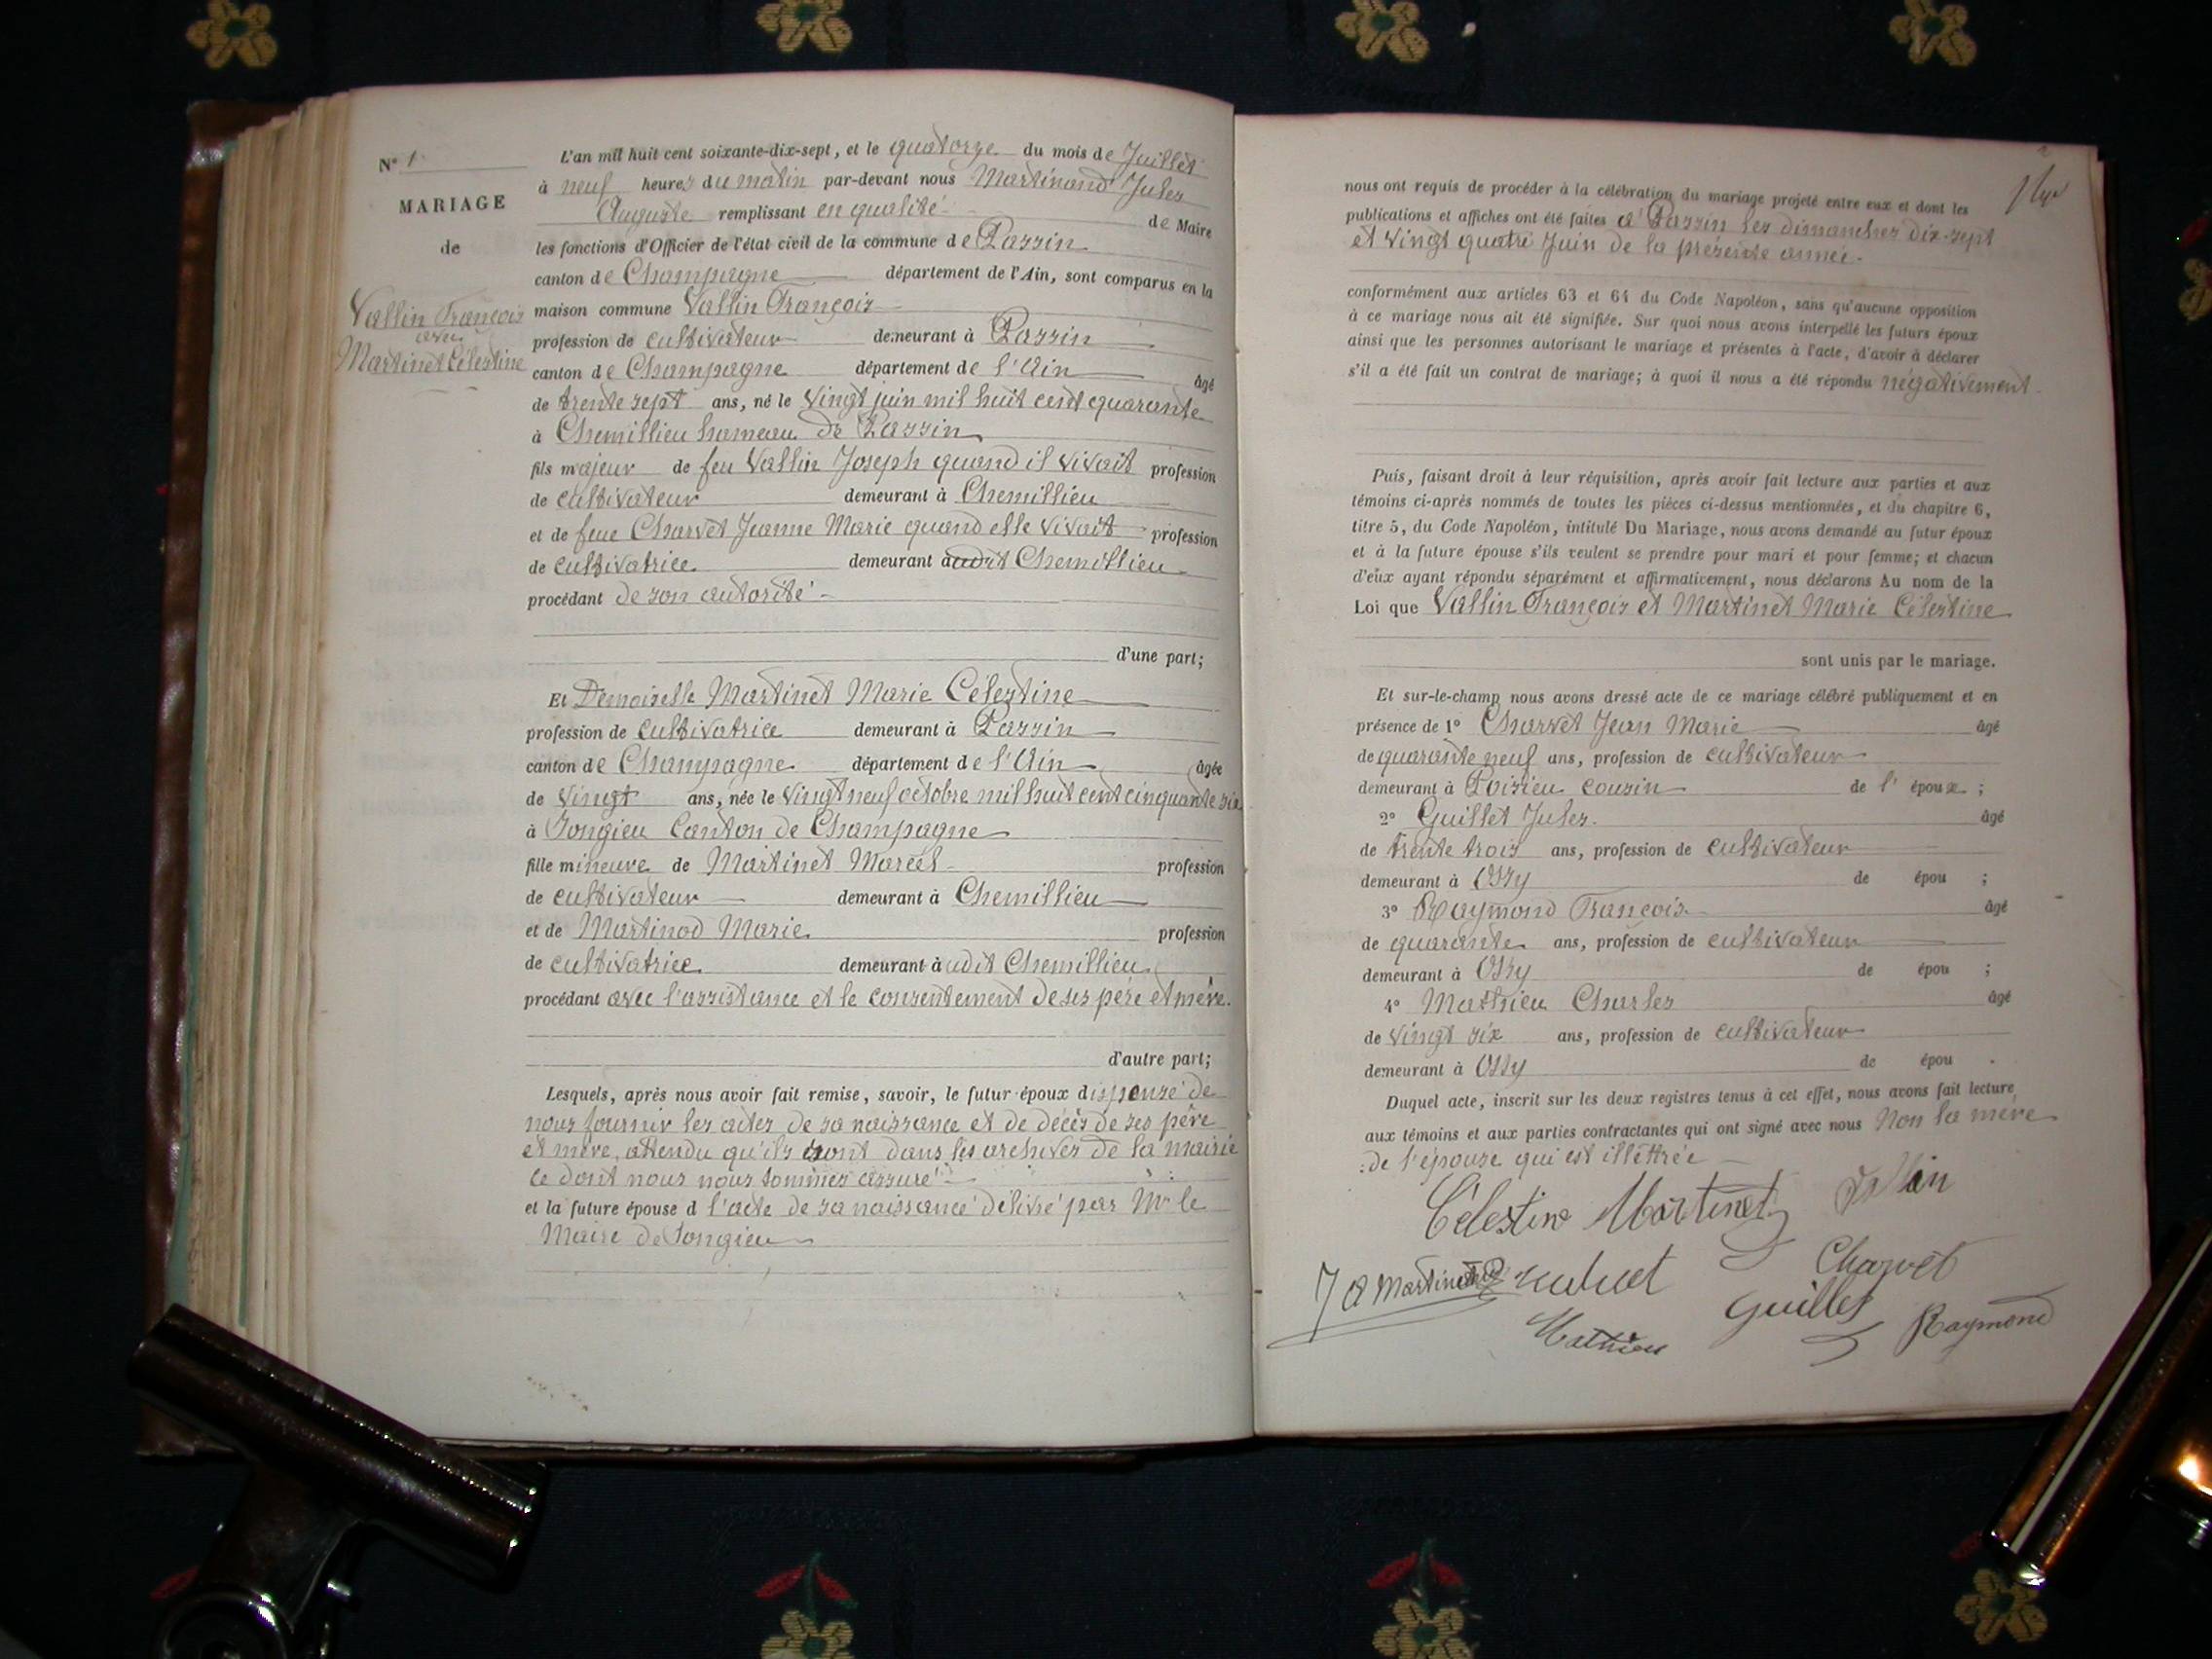 N° 1
MARIAGE
de
Vallin François
avec
Martinet Célestine
L'an mil huit cent soixante-dix-sept, et le quatorze du mois de Juillet
à neuf heures du matin par-devant nous Martinand Jules
Auguste remplissant en qualité de Maire
les fonctions d'Officier de l'état civil de la commune de Passin
canton de Champagne département de l'Ain, sont comparus en la
maison commune Vallin François
profession de cultivateur demeurant à Passin
canton de Champagne département de l'Ain âgé
de trente sept ans, né le vingt juin mil huit cent quarante
à Chemillieu hameau de Passin
fils majeur de feu Vallin Joseph quand il vivait profession
de cultivateur demeurant à Chemillieu
et de feue Charvet Jeanne Marie quand elle vivait profession
de cultivatrice demeurant audit Chemillieu
procédant de son autorité
d'une part;
Et Demoiselle Martinet Marie Célestine
profession de cultivatrice demeurant à Passin
canton de Champagne département de l'Ain âgée
de vingt ans, née le vingt neuf octobre mil huit cent cinquante six
à Songieu Canton de Champagne
fille mineure de Martinet Marcel profession
de cultivateur demeurant à Chemillieu
et de Martinod Marie profession
de cultivatrice demeurant à udit Chemillieu
procédant avec l'assistance et le consentement de ses père et mère.
d'autre part;
Lesquels, après nous avoir fait remise, savoir, le futur époux dispensé de
nous fournir les actes de sa naissance et de décès de ses père
et mère, attendu qu'ils sont dans les archives de la mairie
ce dont nous nous sommes assuré
et la future épouse d l'acte de sa naissance délivré par Mr le
Maire de Songieu
nous ont requis de procéder à la célébration du mariage projeté entre eux et dont les
publications et affiches ont été faites à Passin les dimanches dix-sept
et vingt quatre Juin de la présente année.
conformément aux articles 63 et 64 du Code Napoléon, sans qu'aucune opposition
à ce mariage nous ait été signifiée. Sur quoi nous avons interpellé les futurs époux
ainsi que les personnes autorisant le mariage et présentes à l'acte, d'avoir à déclarer
s'il a été fait un contrat de mariage; à quoi il nous a été répondu négativement.
Puis, faisant droit à leur réquisition, après avoir fait lecture aux parties et aux
témoins ci-après nommés de toutes les pièces ci-dessus mentionnées, et du chapitre 6,
titre 5, du Code Napoléon, intitulé Du Mariage, nous avons demandé au futur époux
et à la future épouse s'ils veulent se prendre pour mari et pour femme; et chacun
d'eux ayant répondu séparément et affirmativement, nous déclarons Au nom de la
Loi que Vallin François et Martinet Marie Célestine
sont unis par le mariage.
Et sur-le-champ nous avons dressé acte de ce mariage célébré publiquement et en
présence de 1° Charvet Jean Marie âgé
de quarante neuf ans, profession de cultivateur
demeurant à Poisieu cousin de l' époux ;
2° Guillet Jules. âgé
de trente trois ans, profession de cultivateur
demeurant à Ossy de épou ;
3° Raymond François âgé
de quarante ans, profession de cultivateur
demeurant à Ossy de épou ;
4° Mathieu Charles âgé
de vingt six ans, profession de cultivateur
demeurant à Ossy de épou .
Duquel acte, inscrit sur les deux registres tenus à cet effet, nous avons fait lecture
aux témoins et aux parties contractantes qui ont signé avec nous Non la mère
de l'épouse qui est illéttrée
Célestine Martinet Vallin
J A Martinand Charvet
Guillet Raymond
Mathieu